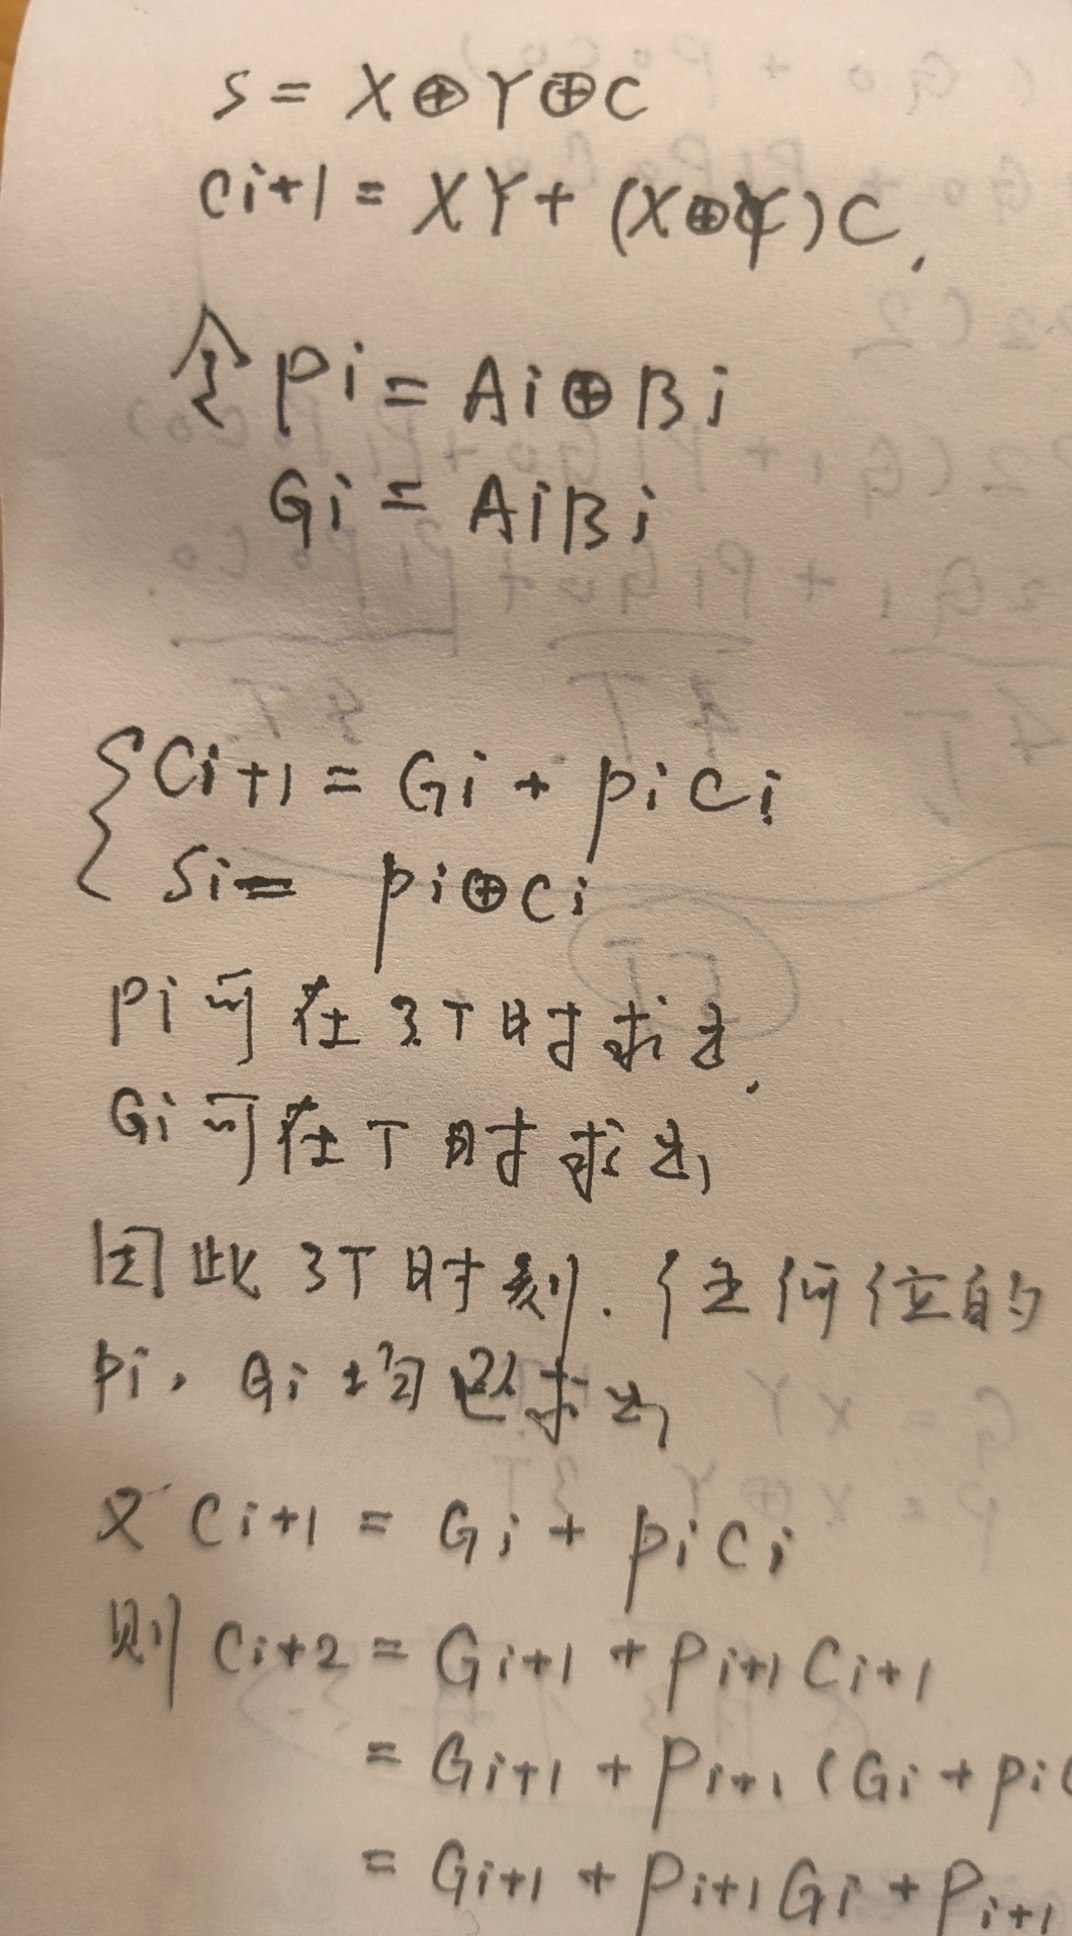 S = X⊕Y⊕C
Ci+1 = XY + (X⊕Y)C,
令 Pi = Ai⊕Bi
Gi = AiBi
Ci+1 = Gi + PiCi
Si = Pi⊕Ci
Pi可在3T时求出,
Gi可在T时求出,
因此3T时刻.任何位的
Pi,Gi均已求出,
又 Ci+1 = Gi + PiCi
则 Ci+2 = Gi+1 + Pi+1Ci+1
= Gi+1 + Pi+1(Gi + Pi
= Gi+1 + Pi+1Gi + Pi+1